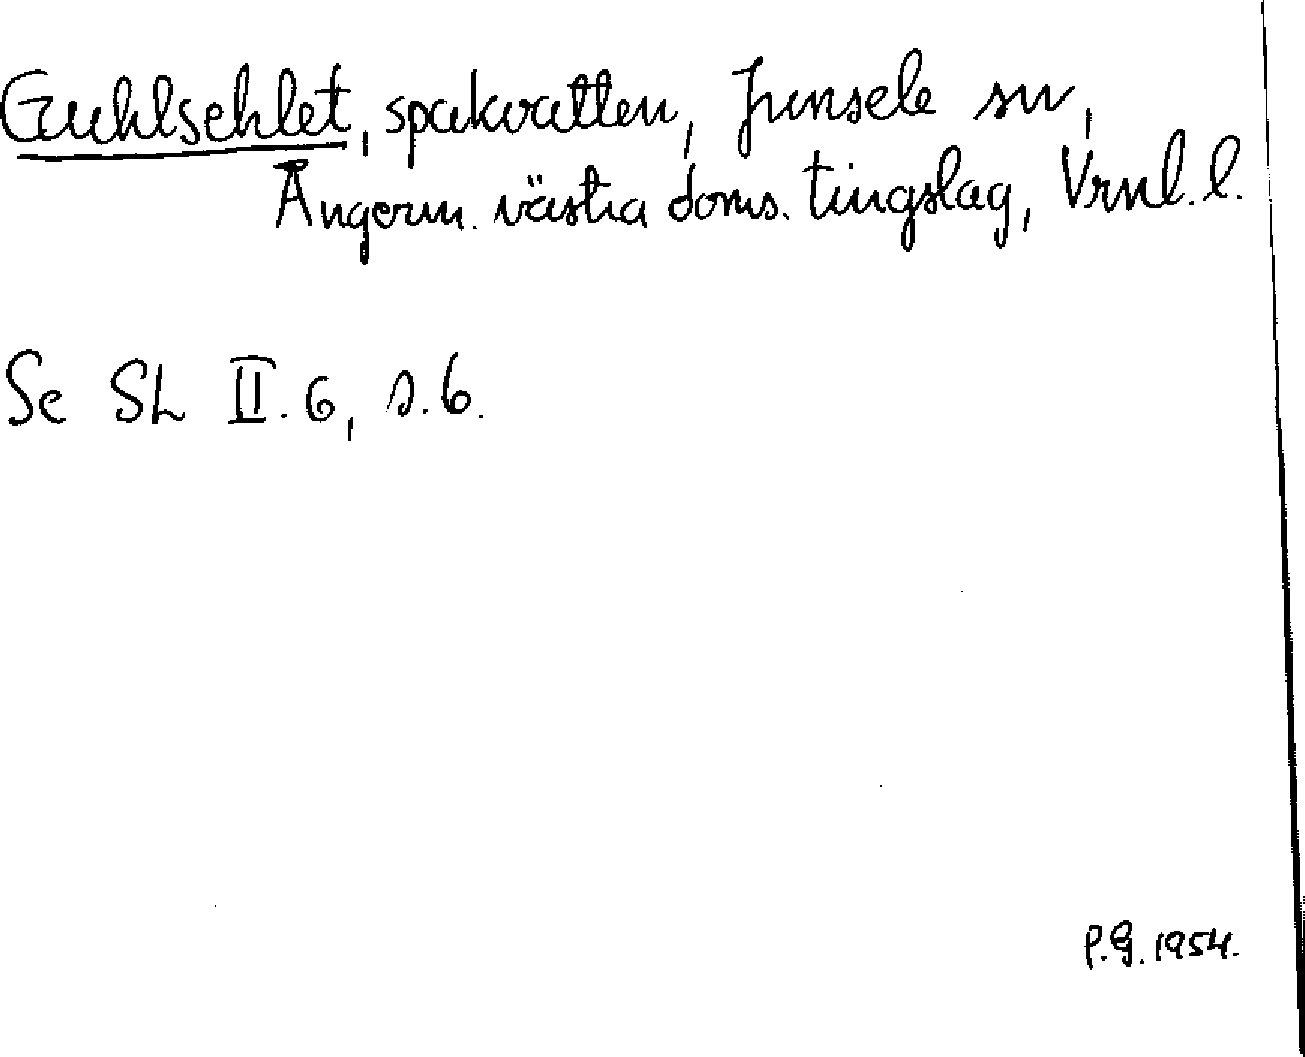 Guhlsehlet, spakvatten, Junsele sn,
Ångerm. västra doms. tingslag, Vrnl. l.
Se SL II. 6, s. 6.
P.G. 1954.